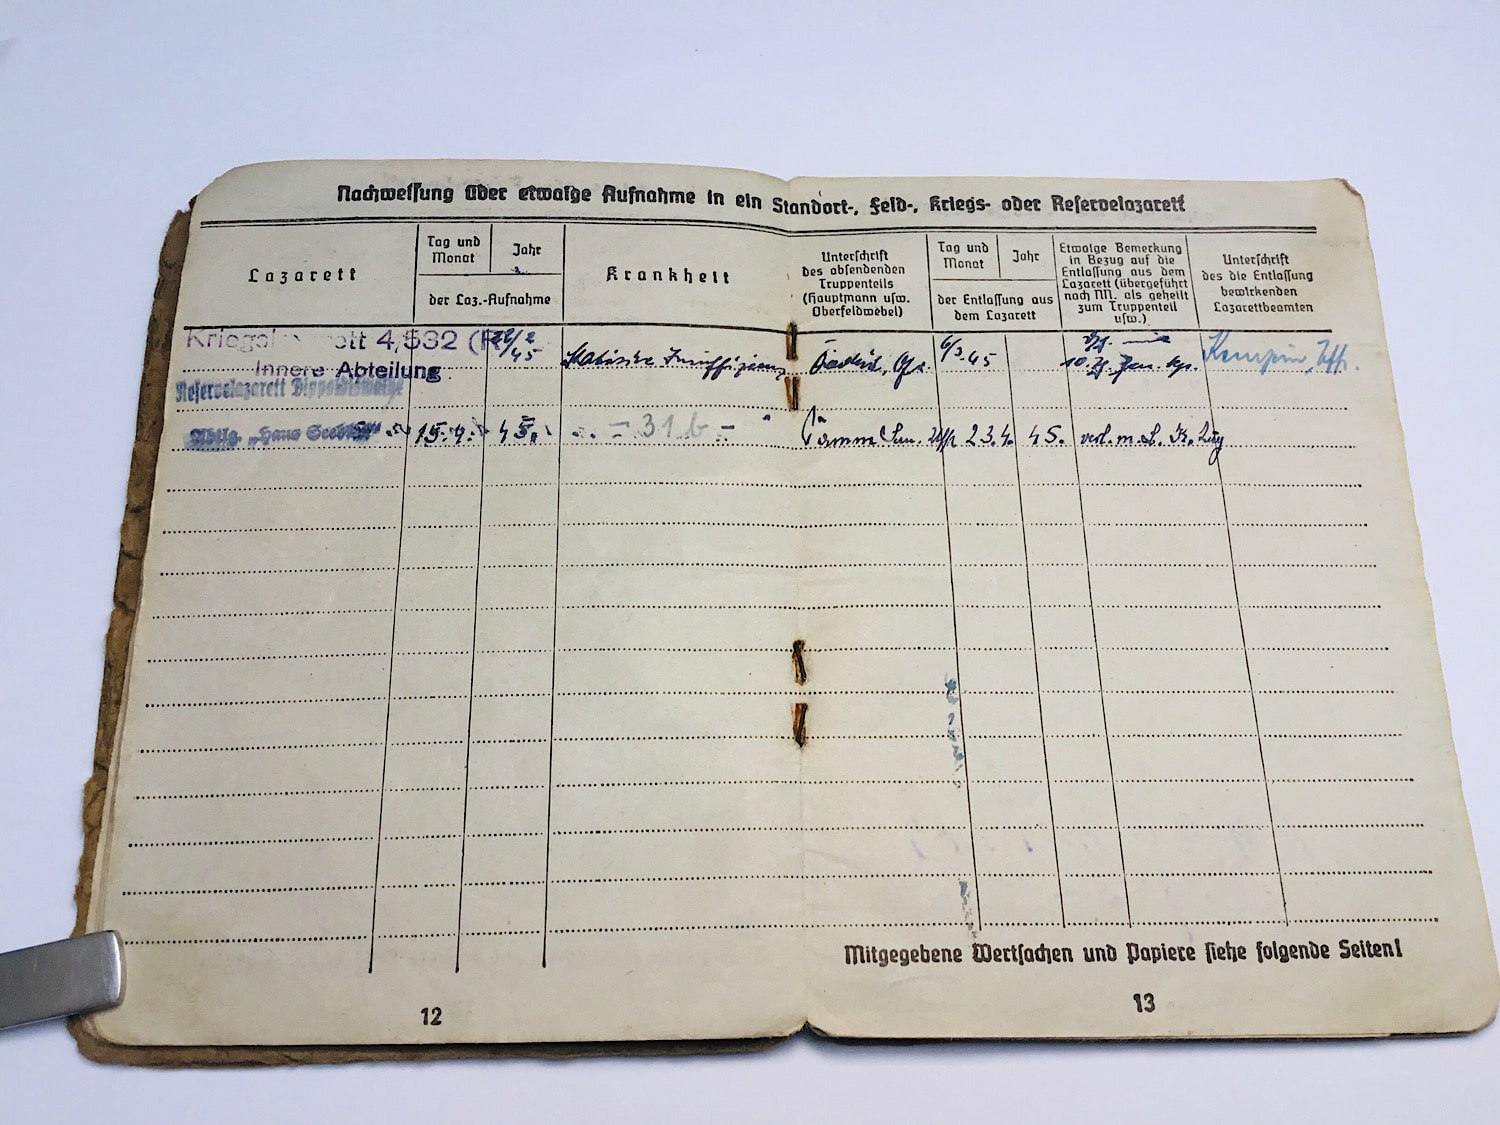 Nachweisung über etwaige Aufnahme in ein Standort-, Feld-, Kriegs- oder Reservelazarett
Lazarett
Tag und Monat
Jahr
der Laz.-Aufnahme
Krankheit
Unterschrift
des absendenden
Truppenteils
(Hauptmann usw.
Oberfeldwebel)
Tag und Monat
Jahr
der Entlassung aus
dem Lazarett
Etwaige Bemerkung
in Bezug auf die
Entlassung aus dem
Lazarett (übergeführt
nach NN. als geheilt
zum Truppenteil
usw.)
Unterschrift
des die Entlassung
bewirkenden
Lazarettbeamten
4/532
22/2 45
Insuffizienz
6/3. 45
Innere Abteilung
Reservelazarett Dippoldiswalde
"Haus 15. 4. 45. - 31b - 23.4. 45. verl. m. L. Zug
Mitgegebene Wertsachen und Papiere siehe folgende Seiten!
12
13